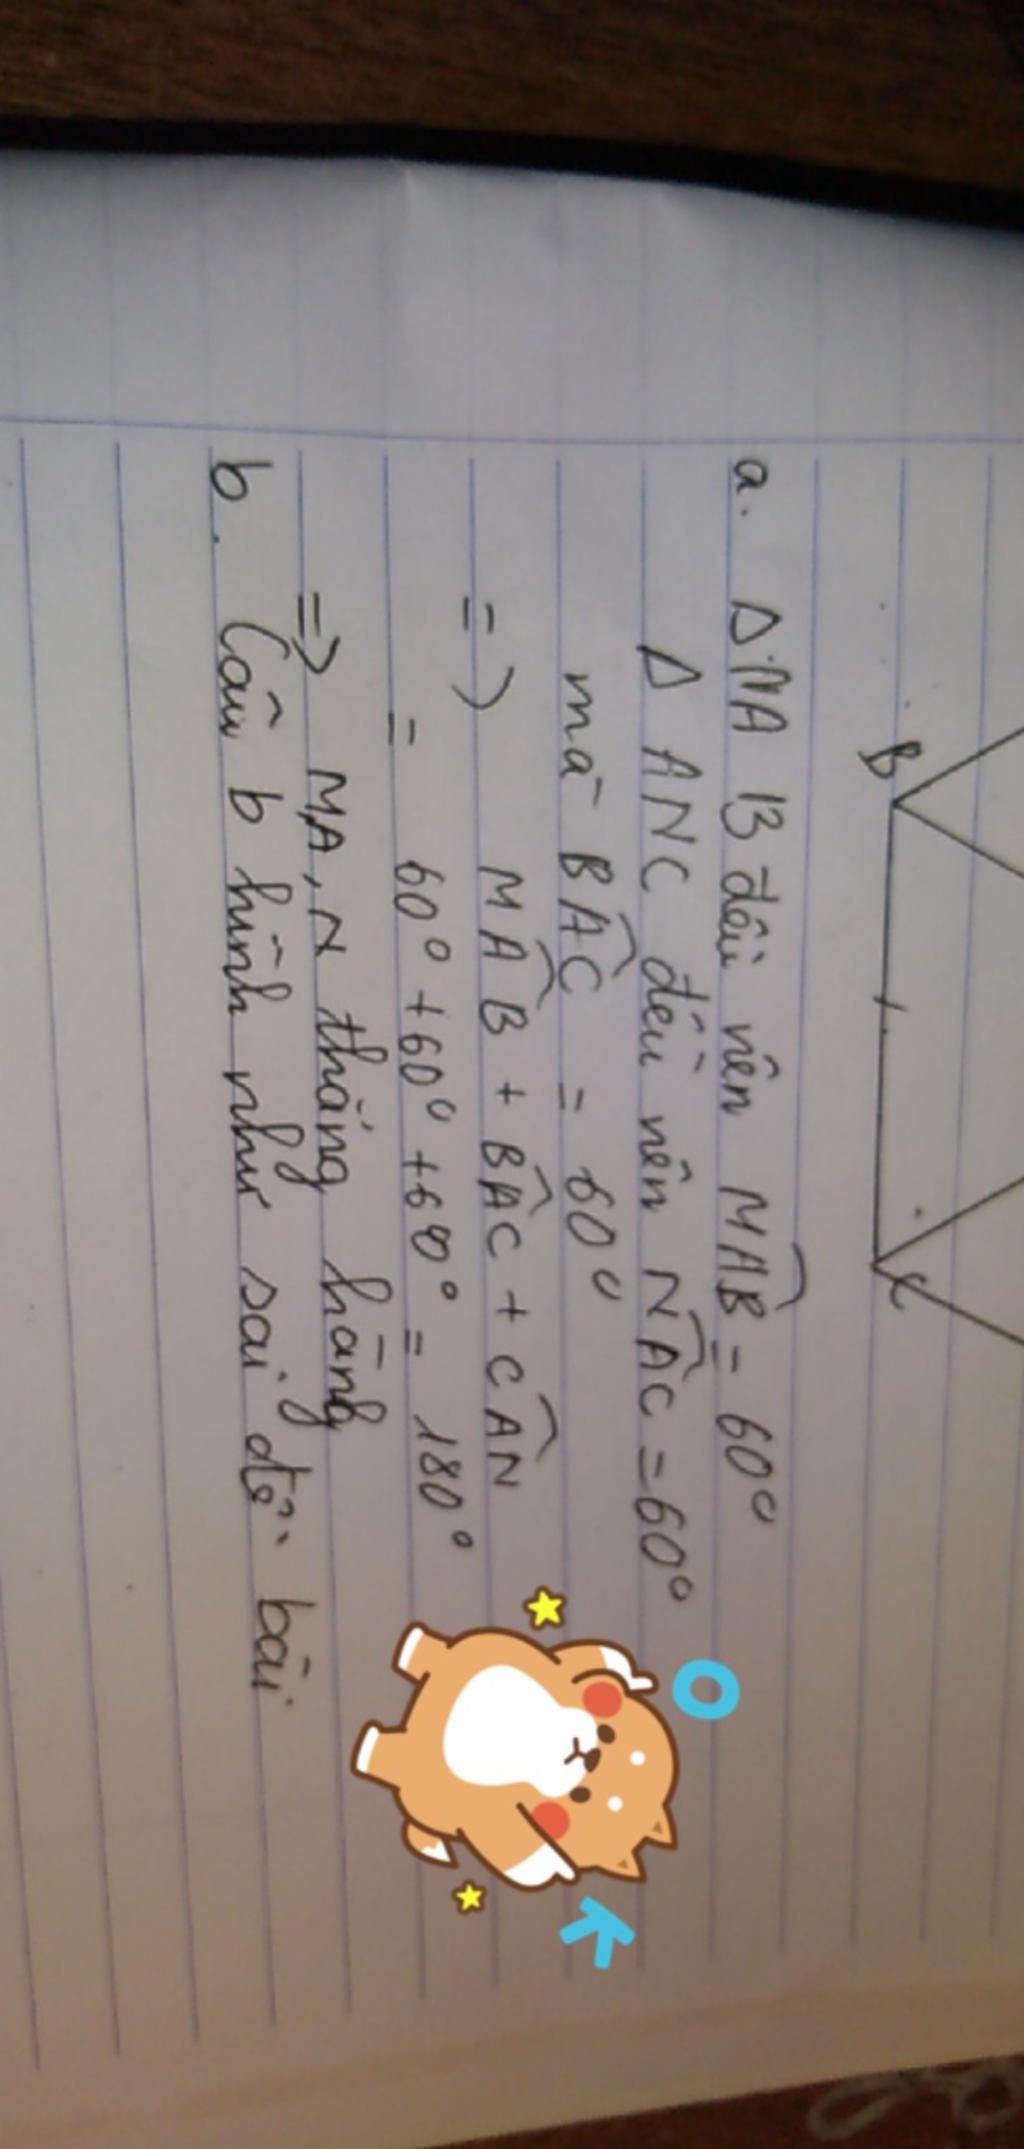 B C
a. Δ MAB đều nên MAB = 60°
Δ ANC đều nên NAC = 60°
mà BAC = 60°
=> MAB + BAC + CAN
= 60° + 60° + 60° = 180°
=> M,A,N thẳng hàng
b. Câu b hình như sai đề bài
OK